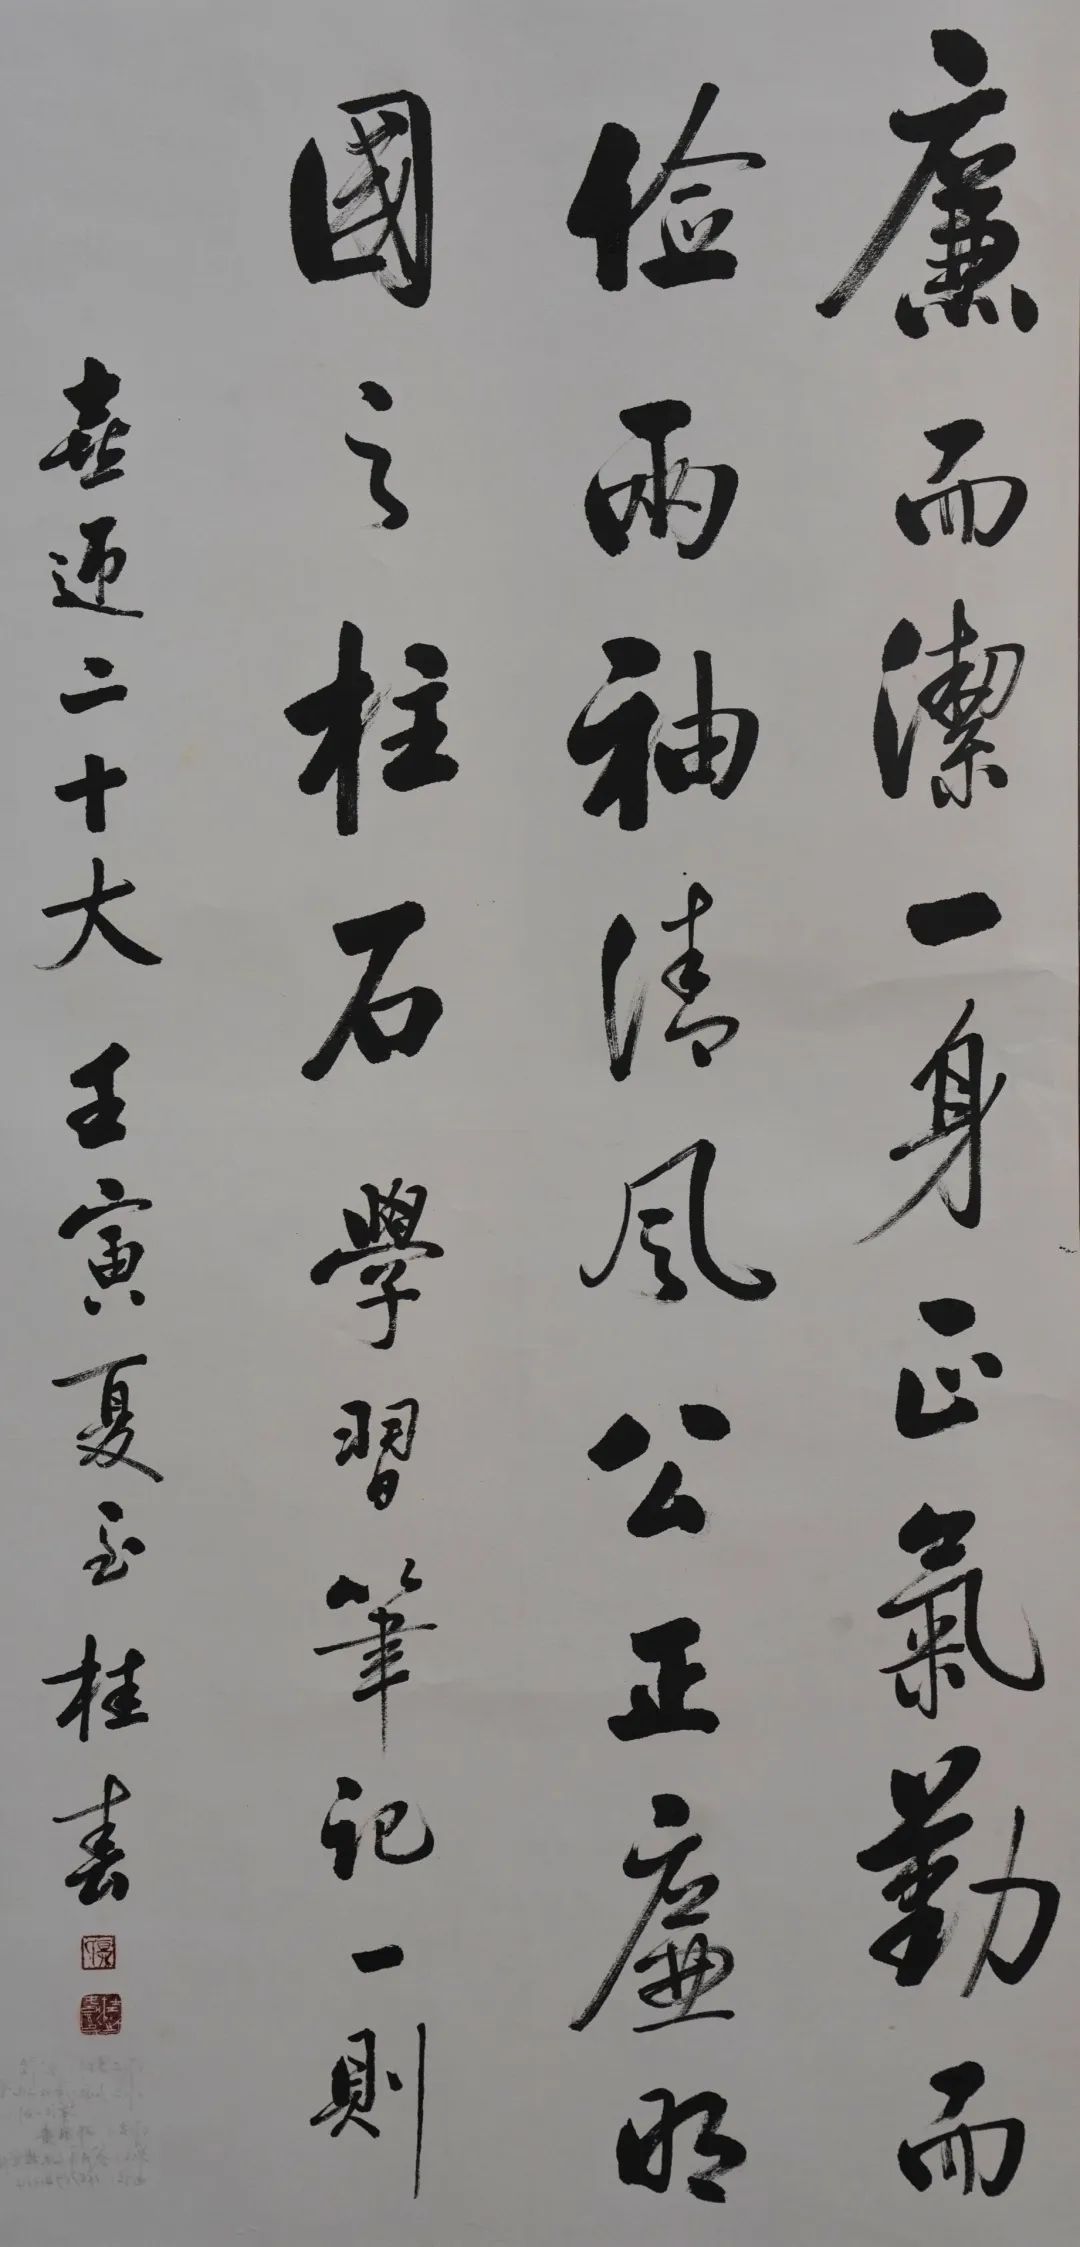 廉而潔一身正氣勤而
儉兩袖清風公正廉明
國之柱石學習筆記一則
喜迎二十大 壬寅夏至桂春